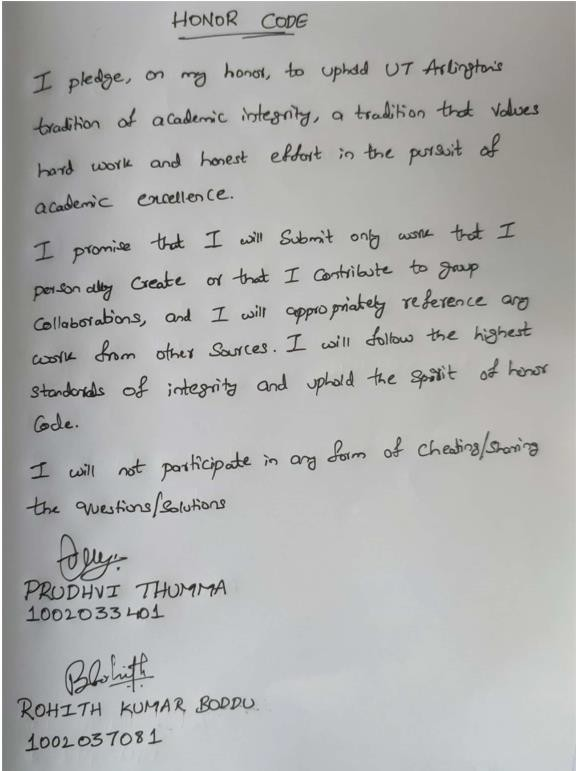 HONOR CODE
I pledge, on my honor, to uphold UT Arlington's
tradition of academic integrity, a tradition that values
hard work and honest effort in the pursuit of
academic excellence.
I promise that I will Submit only work that I
personally Create or that I Contribute to group
Collaborations, and I will appropriately reference any
work from other Sources. I will follow the highest
Standards of integrity and uphold the Spirit of honor
Code.
I will not participate in any form of Cheating/Sharing
the Questions/Solutions
PRUDHVI THUMMA
1002033401
BRohith
ROHITH KUMAR BODDU
1002037081